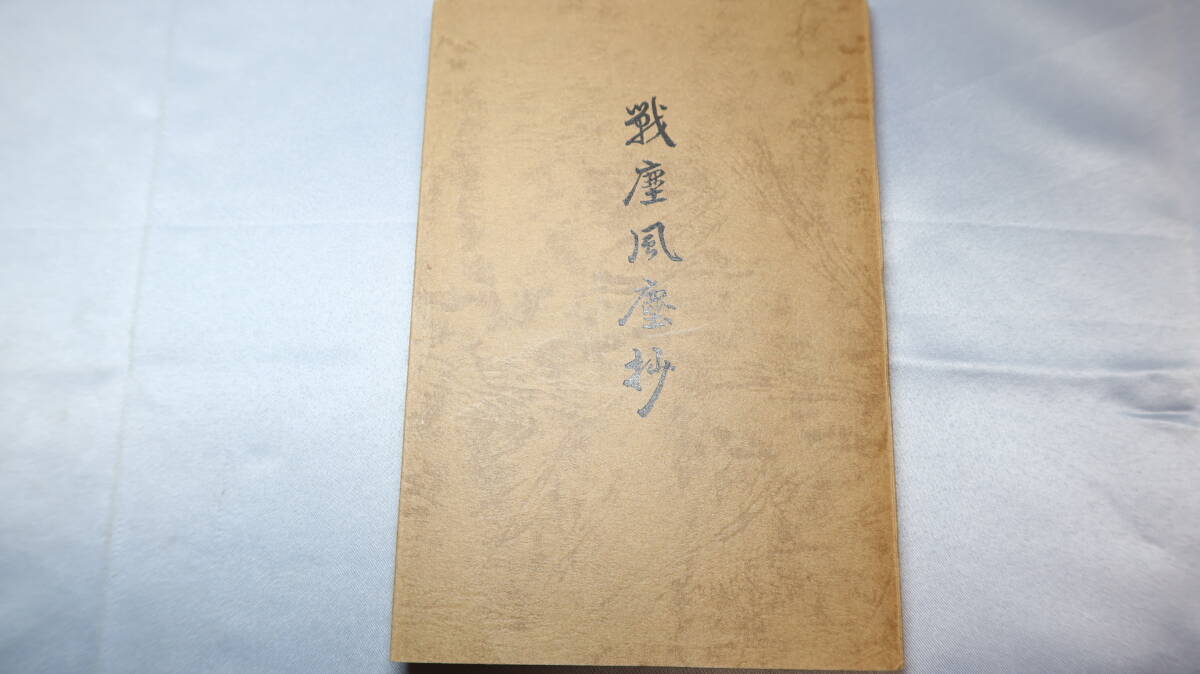 戰塵風塵抄